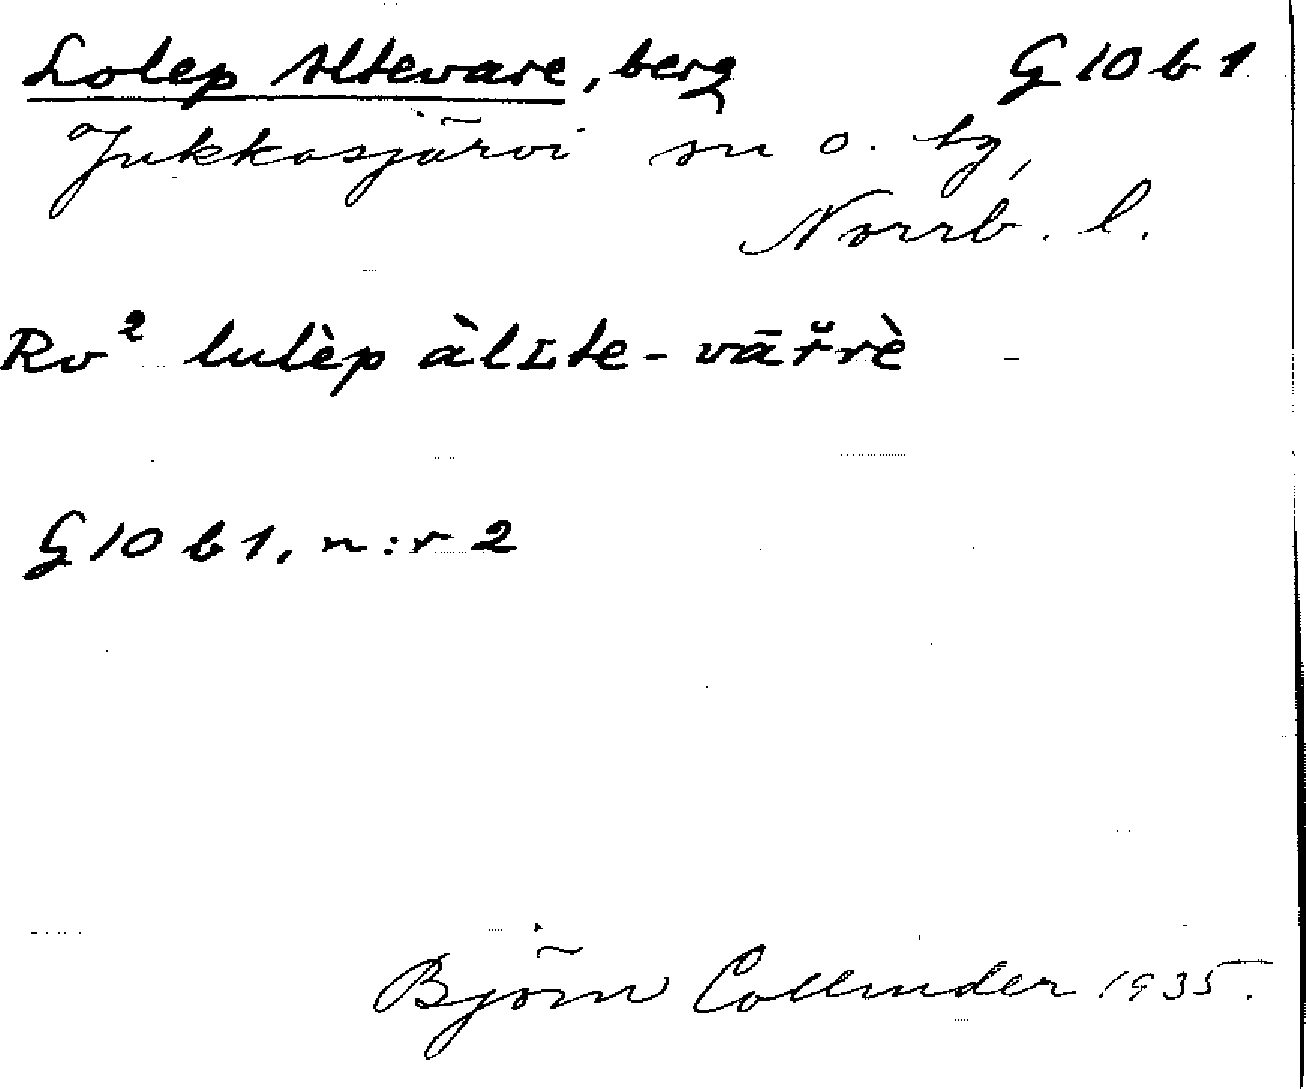 Lolep Altevare, berg G10b1
Jukkasjärvi sn o. tg,
Norrb. l.
Rv² lulèp àlʟte-vār̆rè -
G10b1, n:r 2
Björn Collinder 1935.